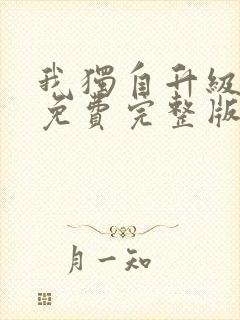 我獨自升級
免費完整版
月一知